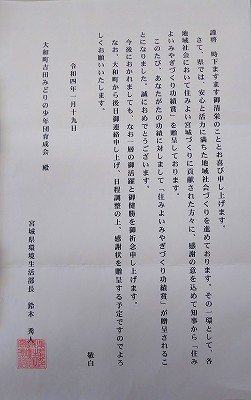 謹啓　時下ますます御清栄のこととお喜び申し上げます。
さて、県では、安心と活力に満ちた地域社会づくりを進めております。その一環として、各
地域社会において住みよい宮城づくりに貢献された方々に、感謝の意を込めて知事から「住み
よいみやぎづくり功績賞」を贈呈しております。
このたび、あなたがたの功績に対しまして「住みよいみやぎづくり功績賞」が贈呈されるこ
とになりました。誠におめでとうございます。
今後におかれましても、なお一層の御活躍と御健勝を御祈念申し上げます。
なお、大和町から後日御連絡申し上げ、日程調整の上、感謝状を贈呈する予定ですのでよろ
しくお願いいたします。
敬白
令和四年一月十九日
宮城県環境生活部長　鈴木　秀
大和町吉田みどりの少年団育成会　殿